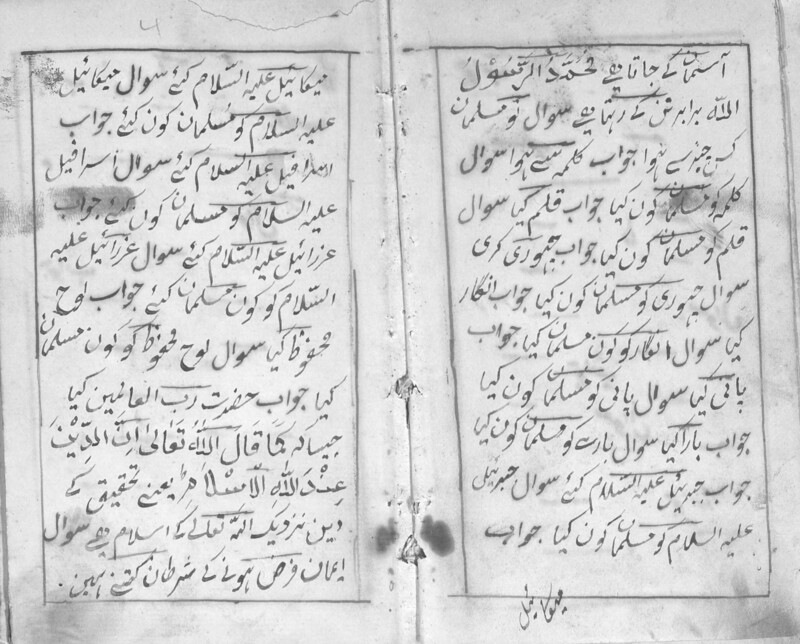 آسمان کے جاتا ہے محمد الرسول
اللہ برابر تن کے رہتا ہے سوال تو مسلمان
کس چیز سے ہوا جواب کلمہ سے ہوا سوال
کلمہ کو مسلمان کون کیا جواب قلم کیا سوال
قلم کو مسلمان کون کیا جواب چھوری کری
سوال چھوری کو مسلمان کون کیا جواب انگار
کیا سوال انگار کو کون مسلمان کیا جواب
پانی کیا سوال پانی کو مسلمان کون کیا
جواب بارا کیا سوال بارے کو مسلمان کون کیا
جواب جبرئیل علیہ السلام کئے سوال جبرئیل
علیہ السلام کو مسلمان کون کیا جواب
میکائیل
۴
میکائیل علیہ السّلام کئے سوال میکائیل
علیہ السلام کو مسلمان کون کئے جواب
اسرافیل علیہ السلام کئے سوال اسرافیل
علیہ السلام کو مسلمان کون کئے جواب
عزرائیل علیہ السّلام کئے سوال عزرائیل علیہ
السّلام کو کون مسلمان کئے جواب لوح
محفوظ کیا سوال لوح محفوظ کو کون مسلمان
کیا جواب حضرت رب العالمین کیا
جیسا کہ کما قَالَ اللّٰهُ تَعَالیٰ اِنَّ الدِّیْنَ
عِنْدَ اللّٰهِ الْاِسْلَام یعنے تحقیق کے
دین نزدیک اللہ تعالی کے اسلام ہے سوال
ایمان فرض ہونے کے شرطان کتے ہیں۔